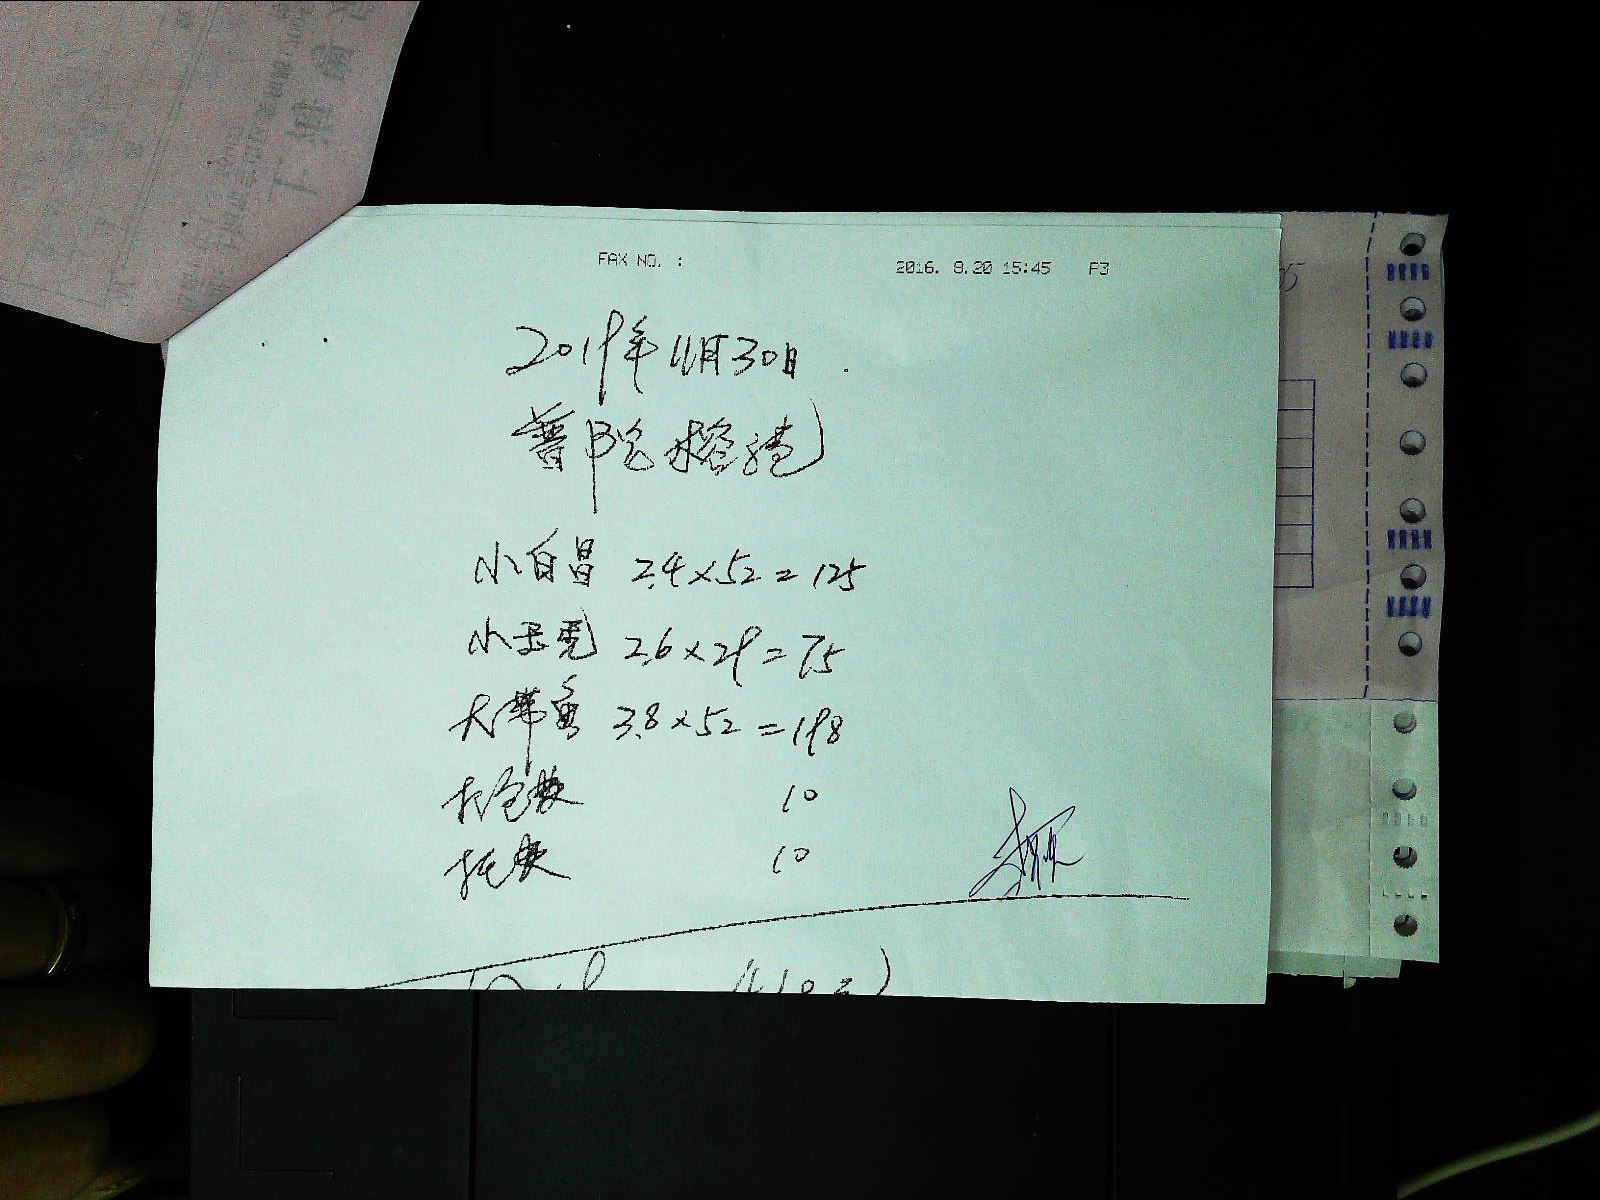 FAX NO. :
2016. 9.20 15:45 P3
2019年11月30日
普陀榕港
小白昌 2.4×52=125
小玉秃 2.6×29=75
大带鱼 3.8×52=198
打包费 10
托费 10